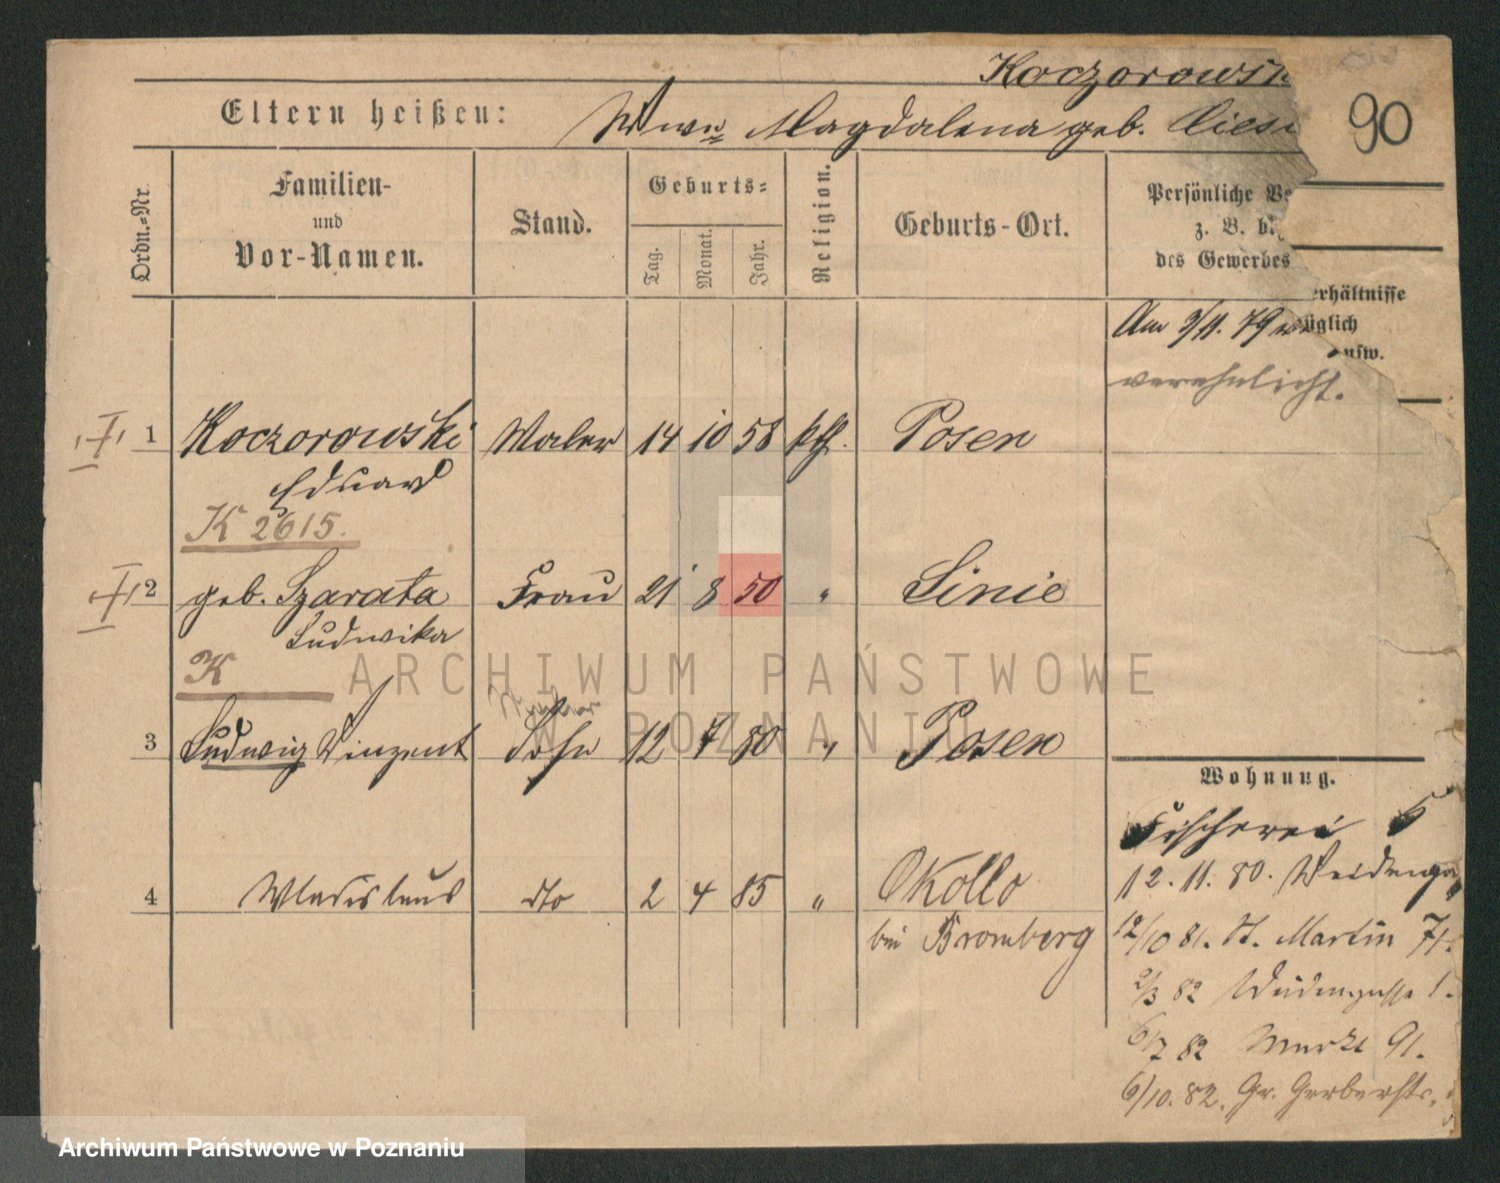 Koczorowski
Eltern heißen: Wwe Magdalena geb.
90
Ordn.-Nr.
Familien-
und
Vor-Namen.
Stand.
Geburts-
Tag.
Monat.
Jahr.
Religion.
Geburts-Ort.
Persönliche Ve
z. B. bez
des Gewerbes
erhältnisse
üglich
usw.
Am 3/11. 79
verehelicht.
I 1 Koczorowski Maler 14 10 58 kth. Posen
Eduard
K 2615.
I 2 geb. Szarata Frau 21 8 50 " Sinie
Ludwika
K
3 Ludwig Vinzent Sohn 12 7 80 " Posen
4 Wladislaus dto 2 4 85 " Okollo
bei Bromberg
Wohnung.
Fischerei 5
12. 11. 80. Weidenga
12/10 81. St. Martin 71.
2/3 82 Weidengasse 1.
6/7 82 Markt 91.
6/10. 82. Gr. Gerberstr.
ARCHIWUM PAŃSTWOWE
W POZNANIU
Archiwum Państwowe w Poznaniu